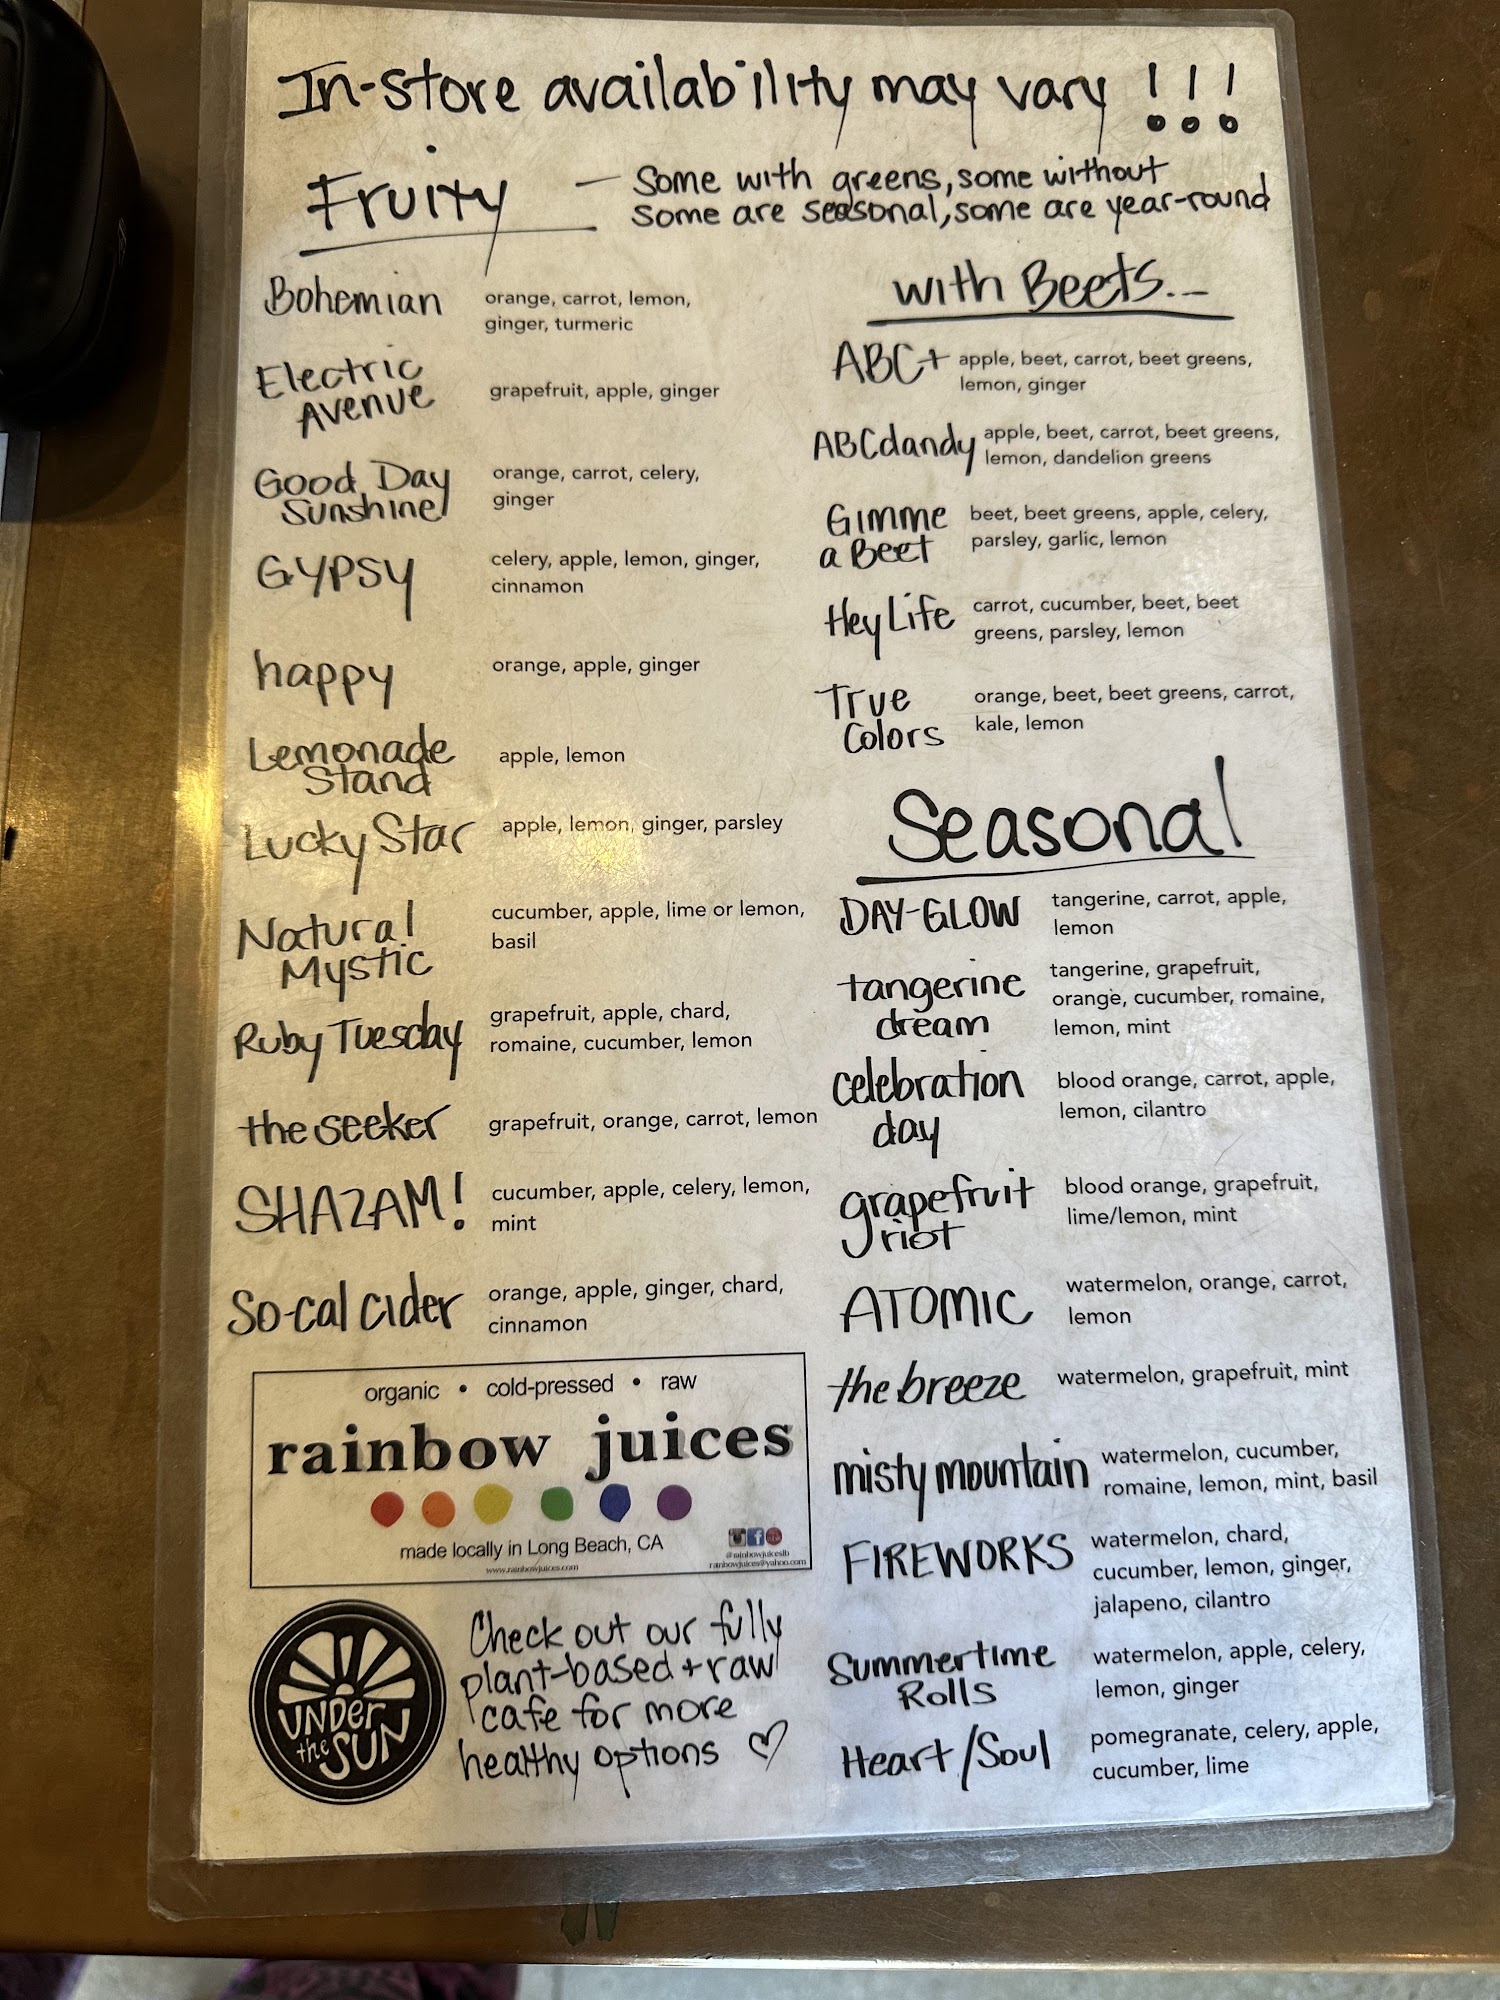 In-store availability may vary !!!
Fruity — Some with greens, some without
some are seasonal, some are year-round
Bohemian
orange, carrot, lemon,
ginger, turmeric
Electric
Avenue
grapefruit, apple, ginger
Good Day
Sunshine
orange, carrot, celery,
ginger
GYPSY
celery, apple, lemon, ginger,
cinnamon
happy
orange, apple, ginger
Lemonade
Stand
apple, lemon
Lucky Star
apple, lemon, ginger, parsley
Natural
Mystic
cucumber, apple, lime or lemon,
basil
Ruby Tuesday
grapefruit, apple, chard,
romaine, cucumber, lemon
the seeker
grapefruit, orange, carrot, lemon
SHAZAM!
cucumber, apple, celery, lemon,
mint
So-cal cider
orange, apple, ginger, chard,
cinnamon
organic • cold-pressed • raw
rainbow juices
made locally in Long Beach, CA
www.rainbowjuices.com
@rainbowjuiceslb
rainbowjuices@yahoo.com
UNDER
the SUN
Check out our fully
plant-based + raw
cafe for more
healthy options ♡
with Beets...
ABC+
apple, beet, carrot, beet greens,
lemon, ginger
ABCdandy
apple, beet, carrot, beet greens,
lemon, dandelion greens
Gimme
a Beet
beet, beet greens, apple, celery,
parsley, garlic, lemon
Hey Life
carrot, cucumber, beet, beet
greens, parsley, lemon
True
Colors
orange, beet, beet greens, carrot,
kale, lemon
Seasonal
DAY-GLOW
tangerine, carrot, apple,
lemon
tangerine
dream
tangerine, grapefruit,
orange, cucumber, romaine,
lemon, mint
celebration
day
blood orange, carrot, apple,
lemon, cilantro
grapefruit
riot
blood orange, grapefruit,
lime/lemon, mint
ATOMIC
watermelon, orange, carrot,
lemon
the breeze
watermelon, grapefruit, mint
misty mountain
watermelon, cucumber,
romaine, lemon, mint, basil
FIREWORKS
watermelon, chard,
cucumber, lemon, ginger,
jalapeno, cilantro
Summertime
Rolls
watermelon, apple, celery,
lemon, ginger
Heart/Soul
pomegranate, celery, apple,
cucumber, lime